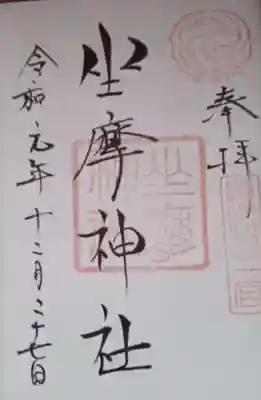 奉拝
坐摩神社
令和元年十二月二十七日